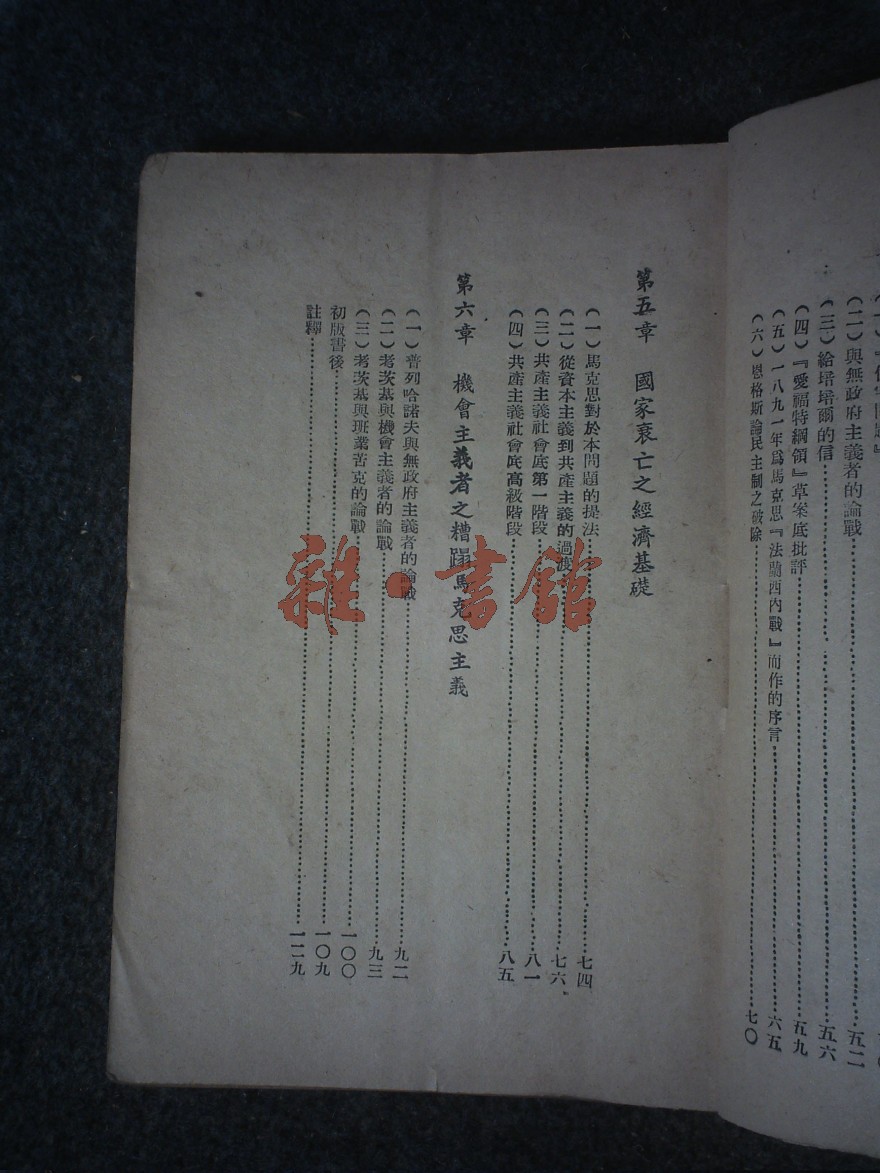 (二)與無政府主義者的論戰……五二
(三)給培培爾的信……五六
(四)『愛福特綱領』草案底批評……五九
(五)一八九一年爲馬克思『法蘭西內戰』而作的序言……六五
(六)恩格斯論民主制之破除……七〇
第五章 國家衰亡之經濟基礎
(一)馬克思對於本問題的提法……七四
(二)從資本主義到共產主義的過渡……七六
(三)共產主義社會底第一階段……八一
(四)共產主義社會底高級階段……八五
第六章 機會主義者之糟蹋馬克思主義
(一)普列哈諾夫與無政府主義者的論戰……九二
(二)考茨基與機會主義者的論戰……九三
(三)考茨基與班業苦克的論戰……一〇〇
初版書後……一〇九
註釋……一二九
雜·書館